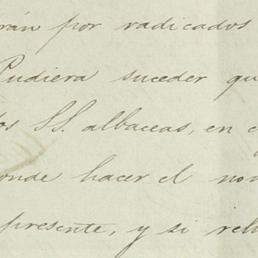 rán por radicados
Pudiera suceder qu
os SS. albaceas, en c
onde hacer el nom
presente, y si reh